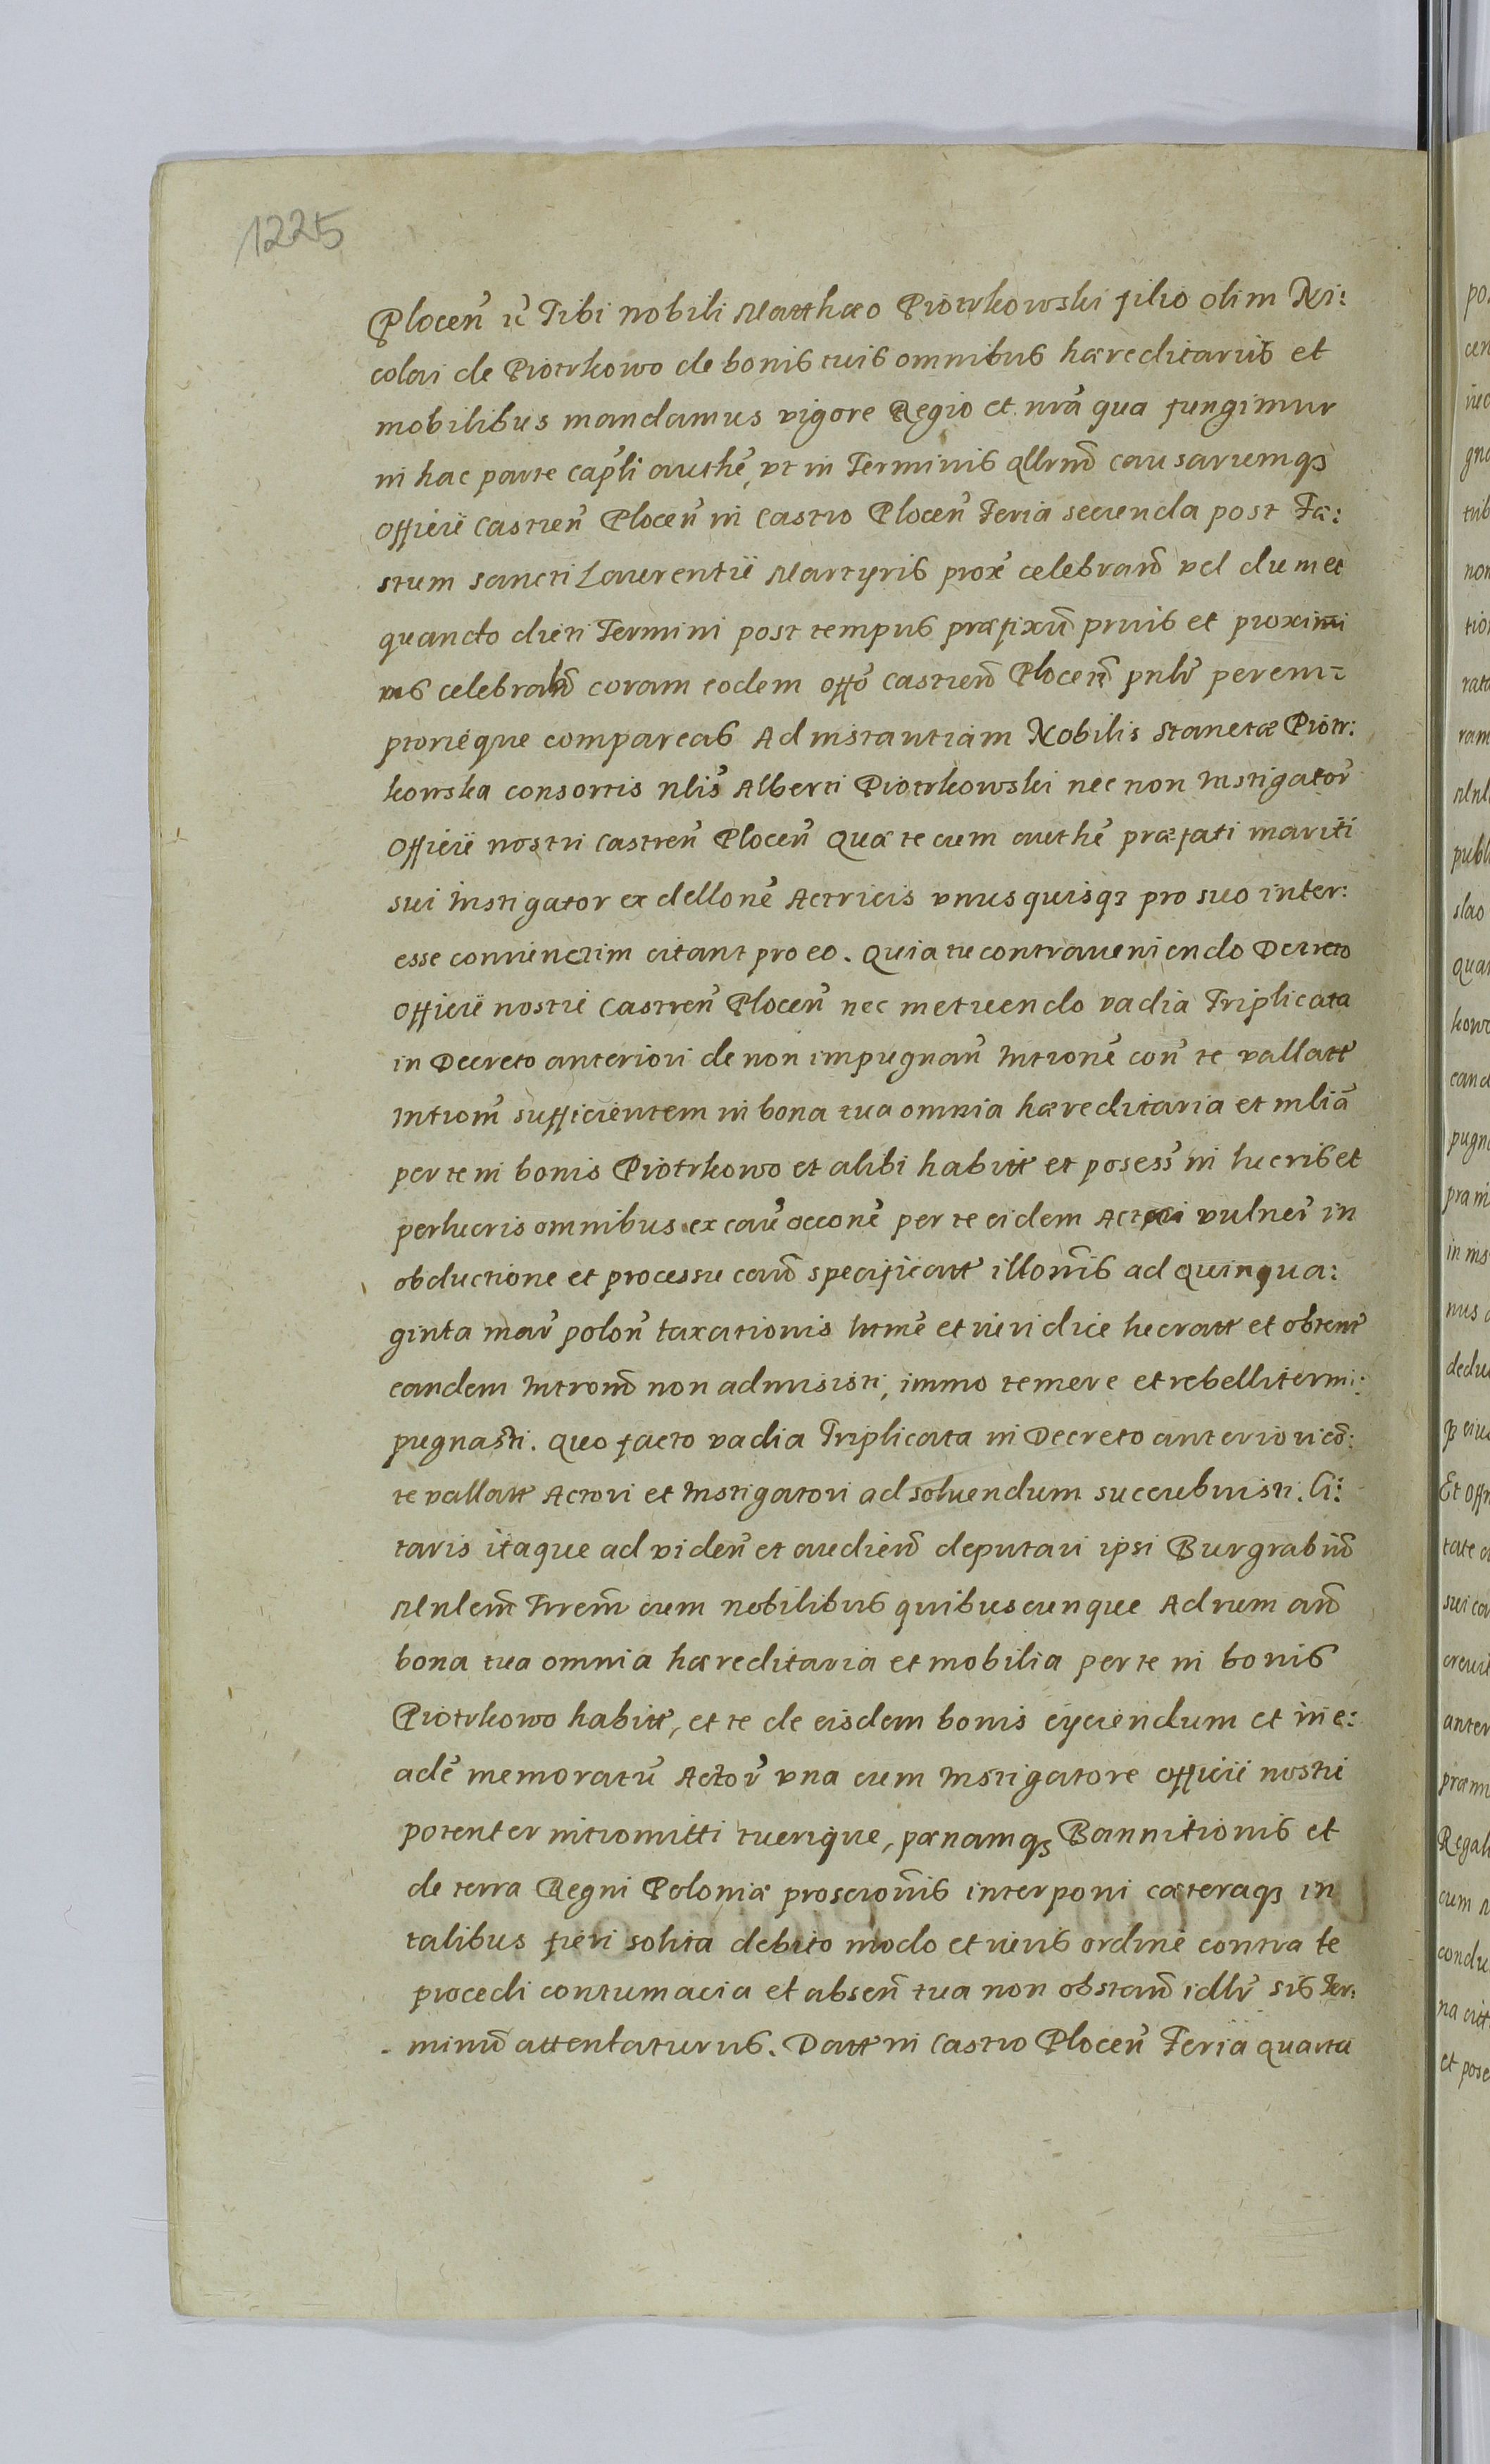 1225
Plocen̄ &c Tibi nobili Matthæo Piotrkowski filio olim Ni:
colai de Piotrkowo de bonis tuis omnibus hæreditariis et
mobilibus mandamus vigore Regio et nr̄a qua fungimur
in hac parte cap̄li authē, vt in Terminis qllrum̄ causarumqȝ
Officii Castren̄ Plocen̄ in Castro Plocen̄ Feria secunda post Fæ:
stum sancti Laurentii Martyris prox̄e celebran̄ vel dum et
quando dicti Termini post tempus præfixū prius et proximi
us celebrabn̄ coram eodem Offō Castren̄ Plocen̄ pnlr̄ perem:
ptorieque compareas Ad instantiam Nobilis Stanetæ Piotr:
kowska consortis nlis̄ Alberti Piotrkowski nec non Instigator̄
Officii nostri Castren̄ Plocen̄ Quæ te cum authē præfati mariti
sui Instigator ex dellonē Actricis vnusquisqȝ pro suo inter:
esse coniunctim citant pro eo. Quia tu contraueniendo Decreto
Officii nostri Castren̄ Plocen̄ nec metuendo vadia Triplicata
in Decreto anteriori de non impugnan̄ Intronē con̄ te vallatt̄
Introm̄ sufficientem in bona tua omnia hæreditaria et mliā
per te in bonis Piotrkowo et alibi habitt̄ et posess̄ in lucris et
perlucris omnibus ex cau̅ occonē per te eidem Actori vulner̄ in
obductione et processu cau̅ specificatt̄ illor̄nis ad Quinqua:
ginta mar̄ polon̄ taxationis Iurnē et iuridice lucratt̄ et obtent̄
eandem Intron̄ non admisisti, immo temere et rebelliter im:
pugnasti. Quo facto vadia Triplicata in Decreto anteriori cō:
te vallatt̄ Actori et Instigatori ad soluendum succubuisti. Ci:
taris itaque ad viden̄ et audien̄ deputari ipsi Burgrabiū
Mnlem̄ Trrem̄ cum nobilibus quibuscunque Ad rum an̄
bona tua omnia hæreditaria et mobilia per te in bonis
Piotrkowo habitt̄, et te de eisdem bonis eyciendum et in e:
adē memoratū Actor̄ vna cum Instigatore Officii nostri
potenter intromitti tuerique, pænamqȝ Bannitionis et
de terra Regni Poloniæ proscrion̄is interponi cæteraqȝ in
talibus fieri solita debito modo et iuris ordine contra te
procedi contumacia et absen̄ tua non obstan̄ idlr̄ sis Ter:
minū attentaturus. Datt̄ in Castro Plocen̄ Feria quarta